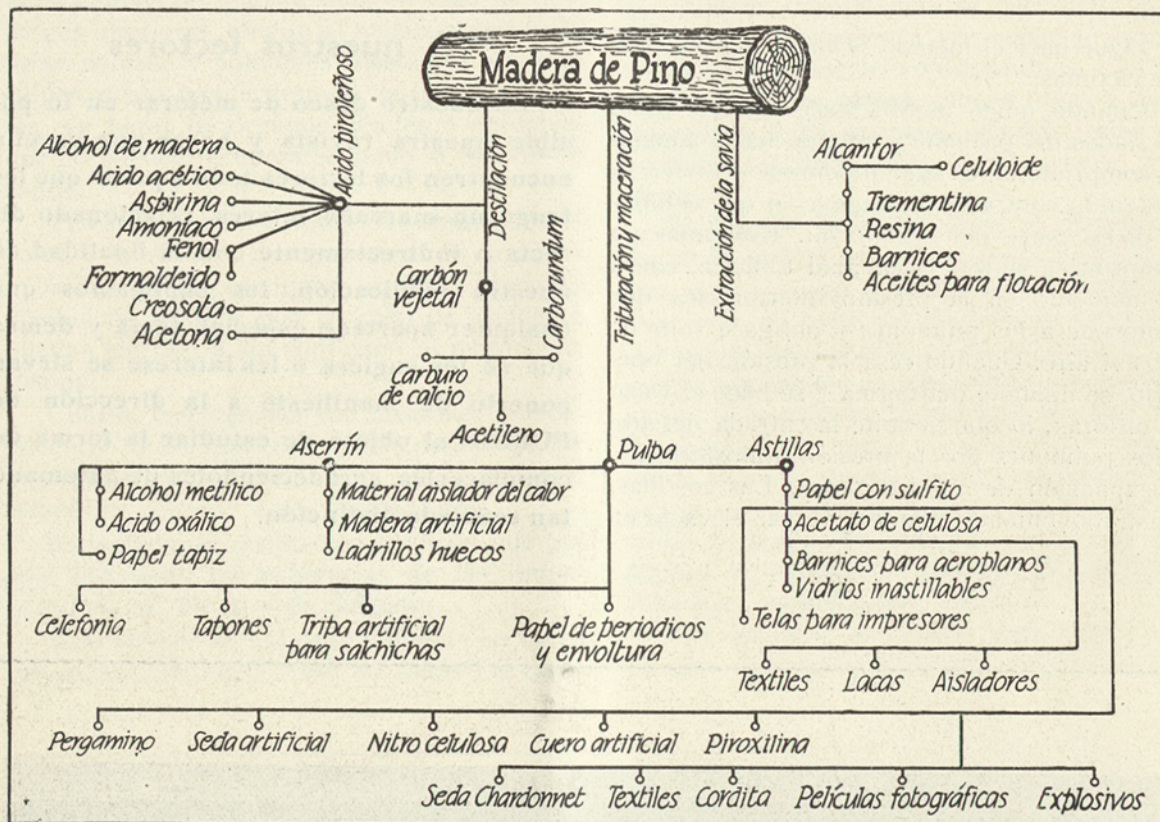 Madera de Pino
Acido piroleñoso
Alcohol de madera
Acido acético
Aspirina
Amoníaco
Fenol
Formaldeido
Creosota
Acetona
Destilación
Carbón
vejetal
Carborandum
Carburo
de calcio
Acetileno
Trituración y maceración
Extracción de la savia
Alcanfor
Celuloide
Trementina
Resina
Barnices
Aceites para flotación
Aserrín
Pulpa
Astillas
Alcohol metílico
Acido oxálico
Papel tapiz
Material aislador del calor
Madera artificial
Ladrillos huecos
Papel con sulfito
Acetato de celulosa
Barnices para aeroplanos
Vidrios inastillables
Telas para impresores
Celefonia
Tapones
Tripa artificial
para salchichas
Papel de periodicos
y envoltura
Textiles
Lacas
Aisladores
Pergamino
Seda artificial
Nitro celulosa
Cuero artificial
Piroxilina
Seda Chardonnet
Textiles
Cordita
Películas fotográficas
Explosivos